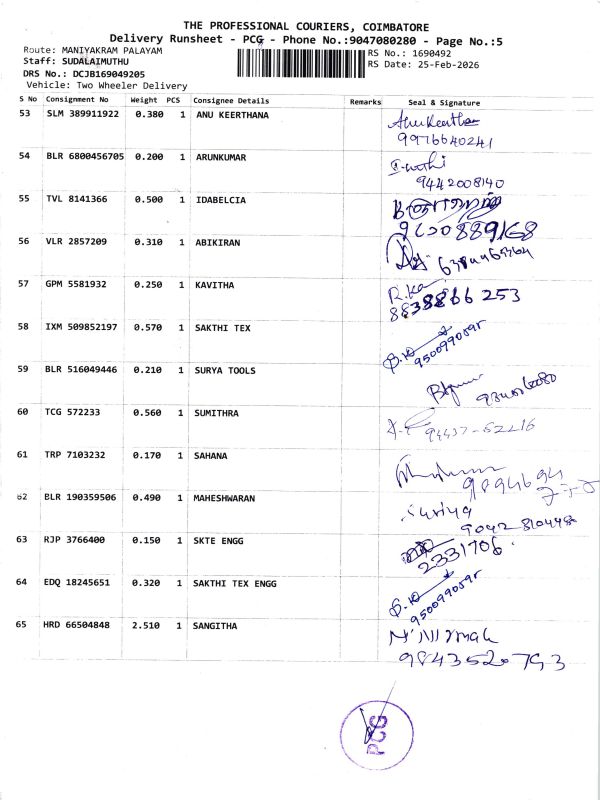 THE PROFESSIONAL COURIERS, COIMBATORE
Delivery Runsheet - PCG - Phone No.:9047080280 - Page No.:5
Route: MANIYAKRAM PALAYAM
RS No.: 1690492
Staff: SUDALAIMUTHU
RS Date: 25-Feb-2026
DRS No.: DCJB169049205
Vehicle: Two Wheeler Delivery
S No Consignment No Weight PCS Consignee Details Remarks Seal & Signature
53 SLM 389911922 0.380 1 ANU KEERTHANA Anu Keerthan
9976640241
54 BLR 6800456705 0.200 1 ARUNKUMAR
9442008140
55 TVL 8141366 0.500 1 IDABELCIA
9600889168
56 VLR 2857209 0.310 1 ABIKIRAN
57 GPM 5581932 0.250 1 KAVITHA R.Ka
8838866 253
58 IXM 509852197 0.570 1 SAKTHI TEX
9500990595
59 BLR 516049446 0.210 1 SURYA TOOLS
60 TCG 572233 0.560 1 SUMITHRA
94437-52216
61 TRP 7103232 0.170 1 SAHANA
9894694
62 BLR 190359506 0.490 1 MAHESHWARAN Suriya
9042 810448
63 RJP 3766400 0.150 1 SKTE ENGG
2331706.
64 EDQ 18245651 0.320 1 SAKTHI TEX ENGG
9500990595
65 HRD 66504848 2.510 1 SANGITHA
9843520793
PCG